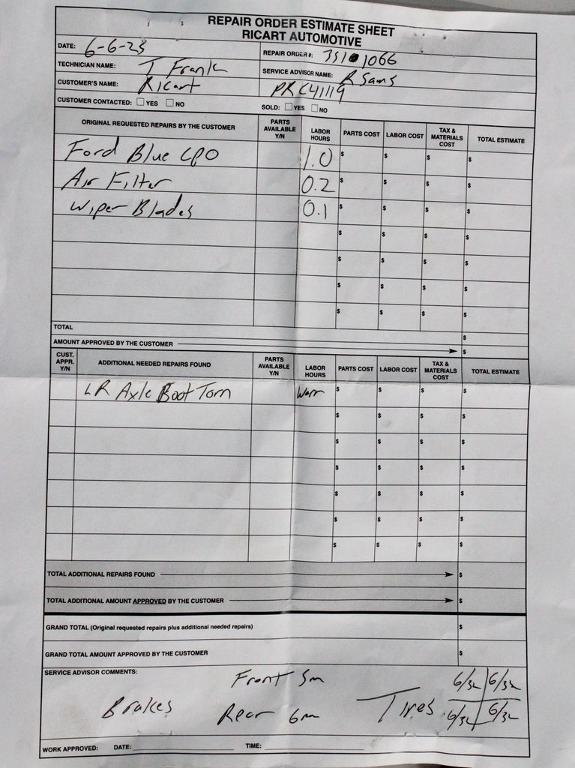 REPAIR ORDER ESTIMATE SHEET
RICART AUTOMOTIVE
DATE: 6-6-25 REPAIR ORDER #: 1066
TECHNICIAN NAME: T Frank SERVICE ADVISOR NAME: R Sams
CUSTOMER'S NAME: Ricart PRC41119
CUSTOMER CONTACTED: ☐ YES ☐ NO SOLD: ☐ YES ☐ NO
ORIGINAL REQUESTED REPAIRS BY THE CUSTOMER PARTS AVAILABLE Y/N LABOR HOURS PARTS COST LABOR COST TAX & MATERIALS COST TOTAL ESTIMATE
Ford Blue CPO 1.0 $ $ $ $
Air Filter 0.2 $ $ $ $
Wiper Blades 0.1 $ $ $ $
$ $ $ $
$ $ $ $
$ $ $ $
$ $ $ $
TOTAL $
AMOUNT APPROVED BY THE CUSTOMER $
CUST. APPR. Y/N ADDITIONAL NEEDED REPAIRS FOUND PARTS AVAILABLE Y/N LABOR HOURS PARTS COST LABOR COST TAX & MATERIALS COST TOTAL ESTIMATE
LR Axle Boot Torn Warr $ $ $ $
$ $ $ $
$ $ $ $
$ $ $ $
$ $ $ $
$ $ $ $
$ $ $ $
TOTAL ADDITIONAL REPAIRS FOUND $
TOTAL ADDITIONAL AMOUNT APPROVED BY THE CUSTOMER $
GRAND TOTAL (Original requested repairs plus additional needed repairs) $
GRAND TOTAL AMOUNT APPROVED BY THE CUSTOMER $
SERVICE ADVISOR COMMENTS:
Front 5m 6/32 6/32
Brakes Rear 6m Tires 6/32 6/32
WORK APPROVED: DATE: TIME: